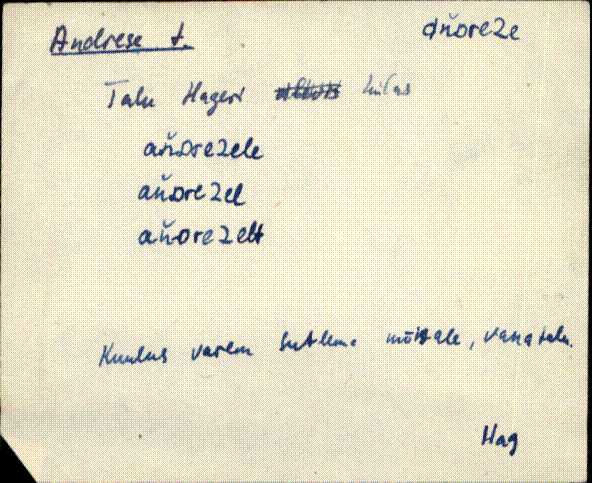 Andrese t. aňᴅreᴢe
Talu Hageri külas
aňᴅreᴢele
aňᴅreᴢel
aňᴅreᴢelt
Kuulus varem Sutlema mõisale, vana talu.
Hag